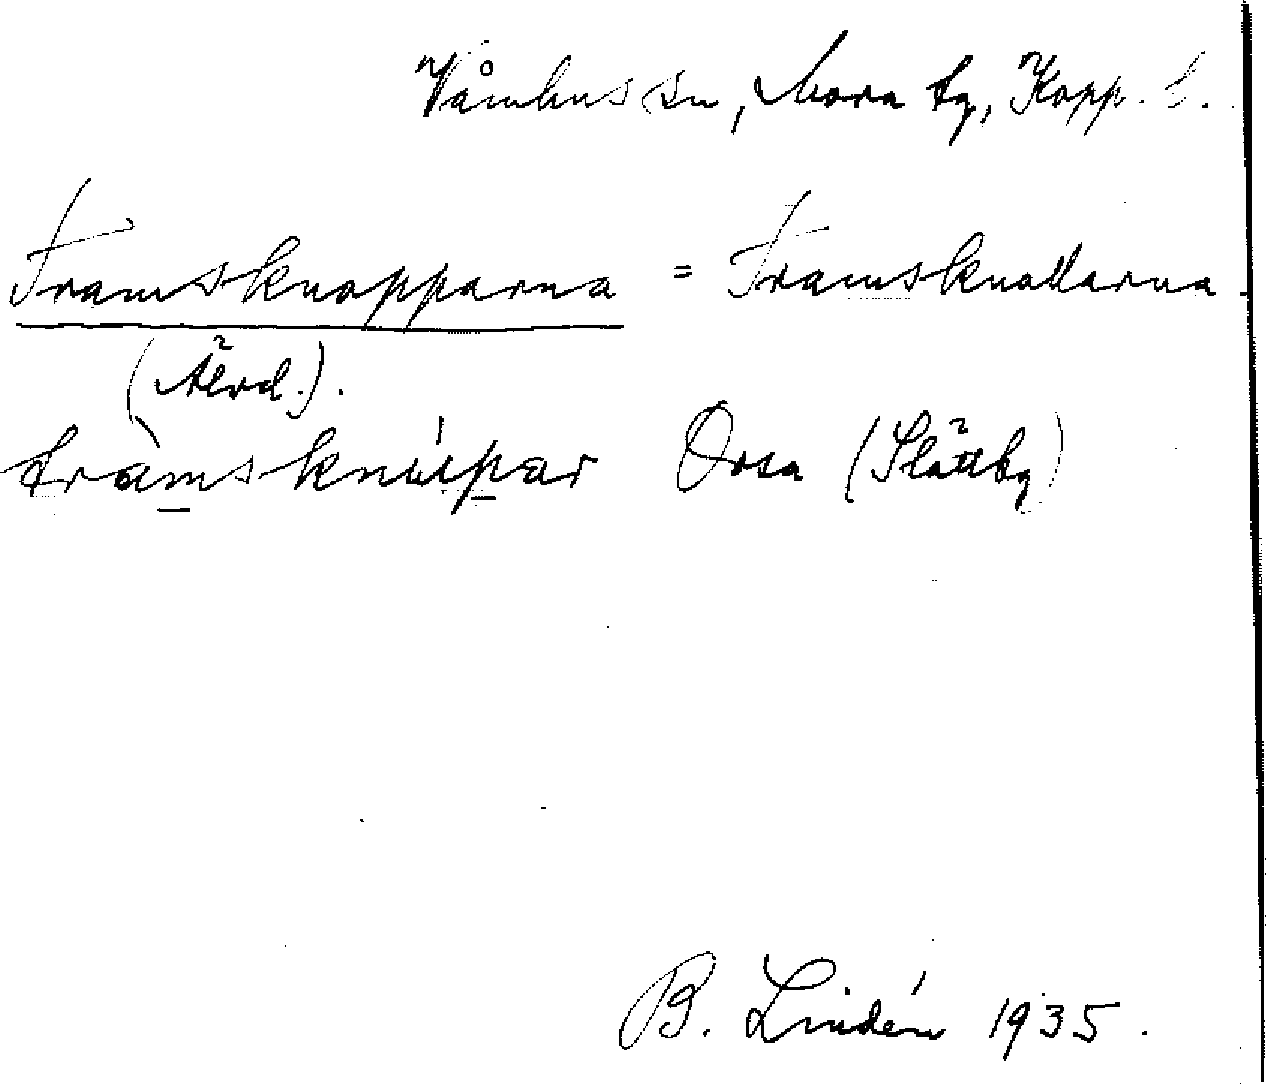 Våmhus sn, Mora tg, Kopp. l.
Tramsknopparna = Tramsknallarna.
(Älvd.).
tràmsknúpar Orsa (Slättbg)
B. Lindén 1935.